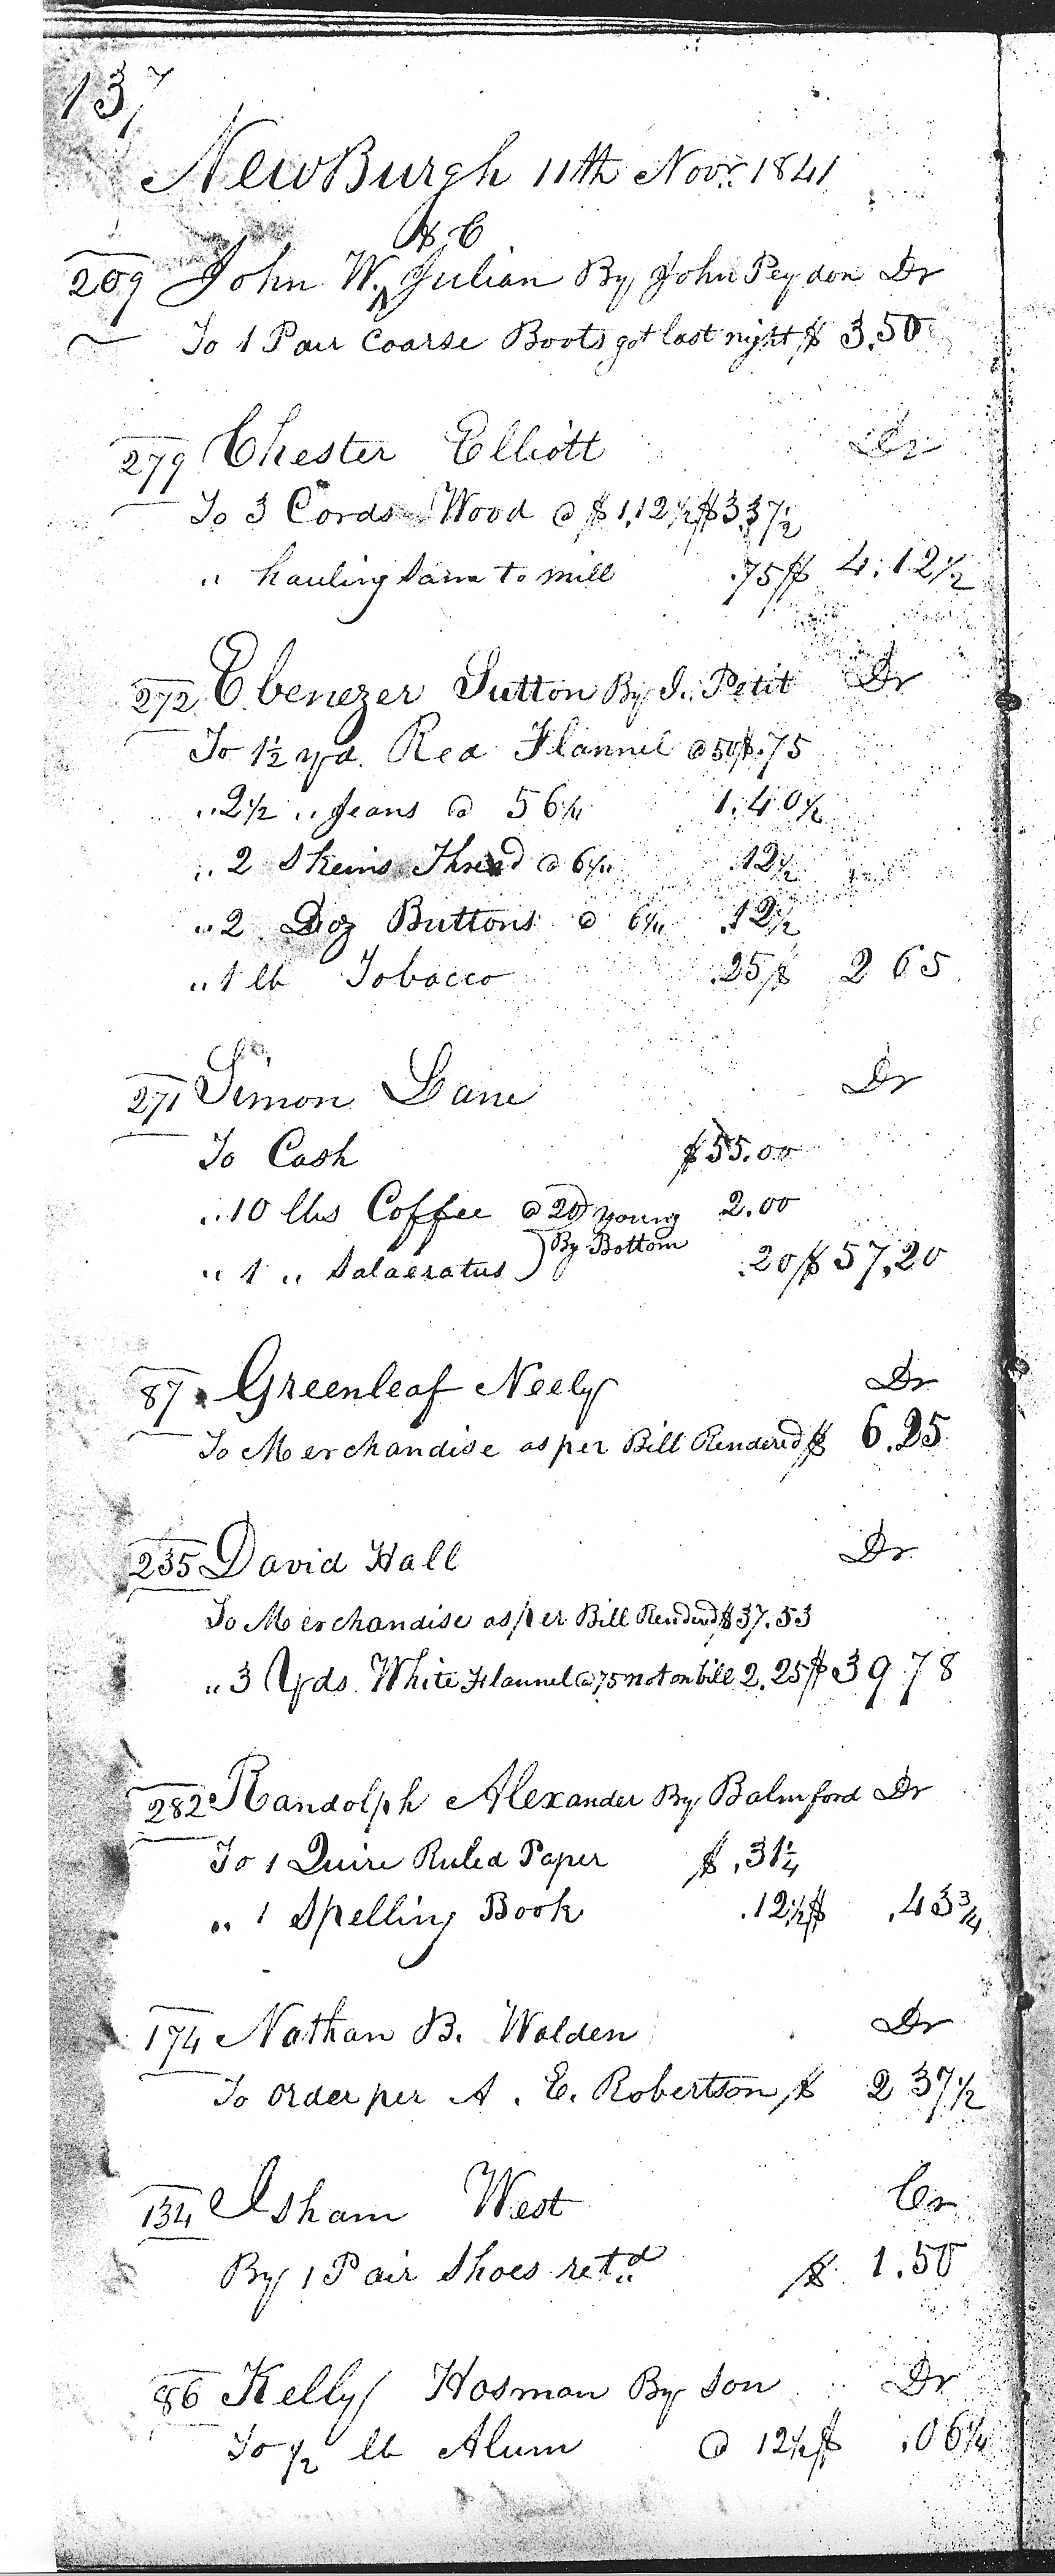 137
NewBurgh 11th Novr. 1841
& C
209 John W. Julian By John Peydon Dr
To 1 Pair Coarse Boots got last night $ 3.50
279 Chester Elliott Dr
To 3 Cords Wood @ $1,12½ $3.37½
" hauling Same to mill .75 $ 4.12½
272 Ebenezer Sutton By I. Petit Dr
To 1½ yd. Red Flannel @50 $.75
" 2½ " Jeans @ 56¼ 1.40½
" 2 Skeins Thread @ 6¼ .12½
" 2 Doz Buttons @ 6¼ .12½
" 1 lb Tobacco .25 $ 2 65
271 Simon Lane Dr
To Cash $55.00
" 10 lbs Coffee @ 20 young 2.00
By Bottom
" 1 " Salaeratus .20 $ 57,20
87 Greenleaf Neely Dr
To Merchandise as per Bill Rendered $ 6.25
235 David Hall Dr.
To Merchandise as per Bill Rendered $37.53
" 3 Yds. White Flannel @75 not on bill 2.25 $ 39.78
282 Randolph Alexander By Balmford Dr
To 1 Quire Ruled Paper $ .31¼
" 1 Spelling Book .12½ $ .43¾
174 Nathan B. Walden Dr
To order per A. E. Robertson $ 2 37½
134 Isham West Cr
By 1 Pair Shoes retd $ 1.50
86 Kelly Hosman By Son Dr
To ½ lb Alum @ 12½ $ .06¼